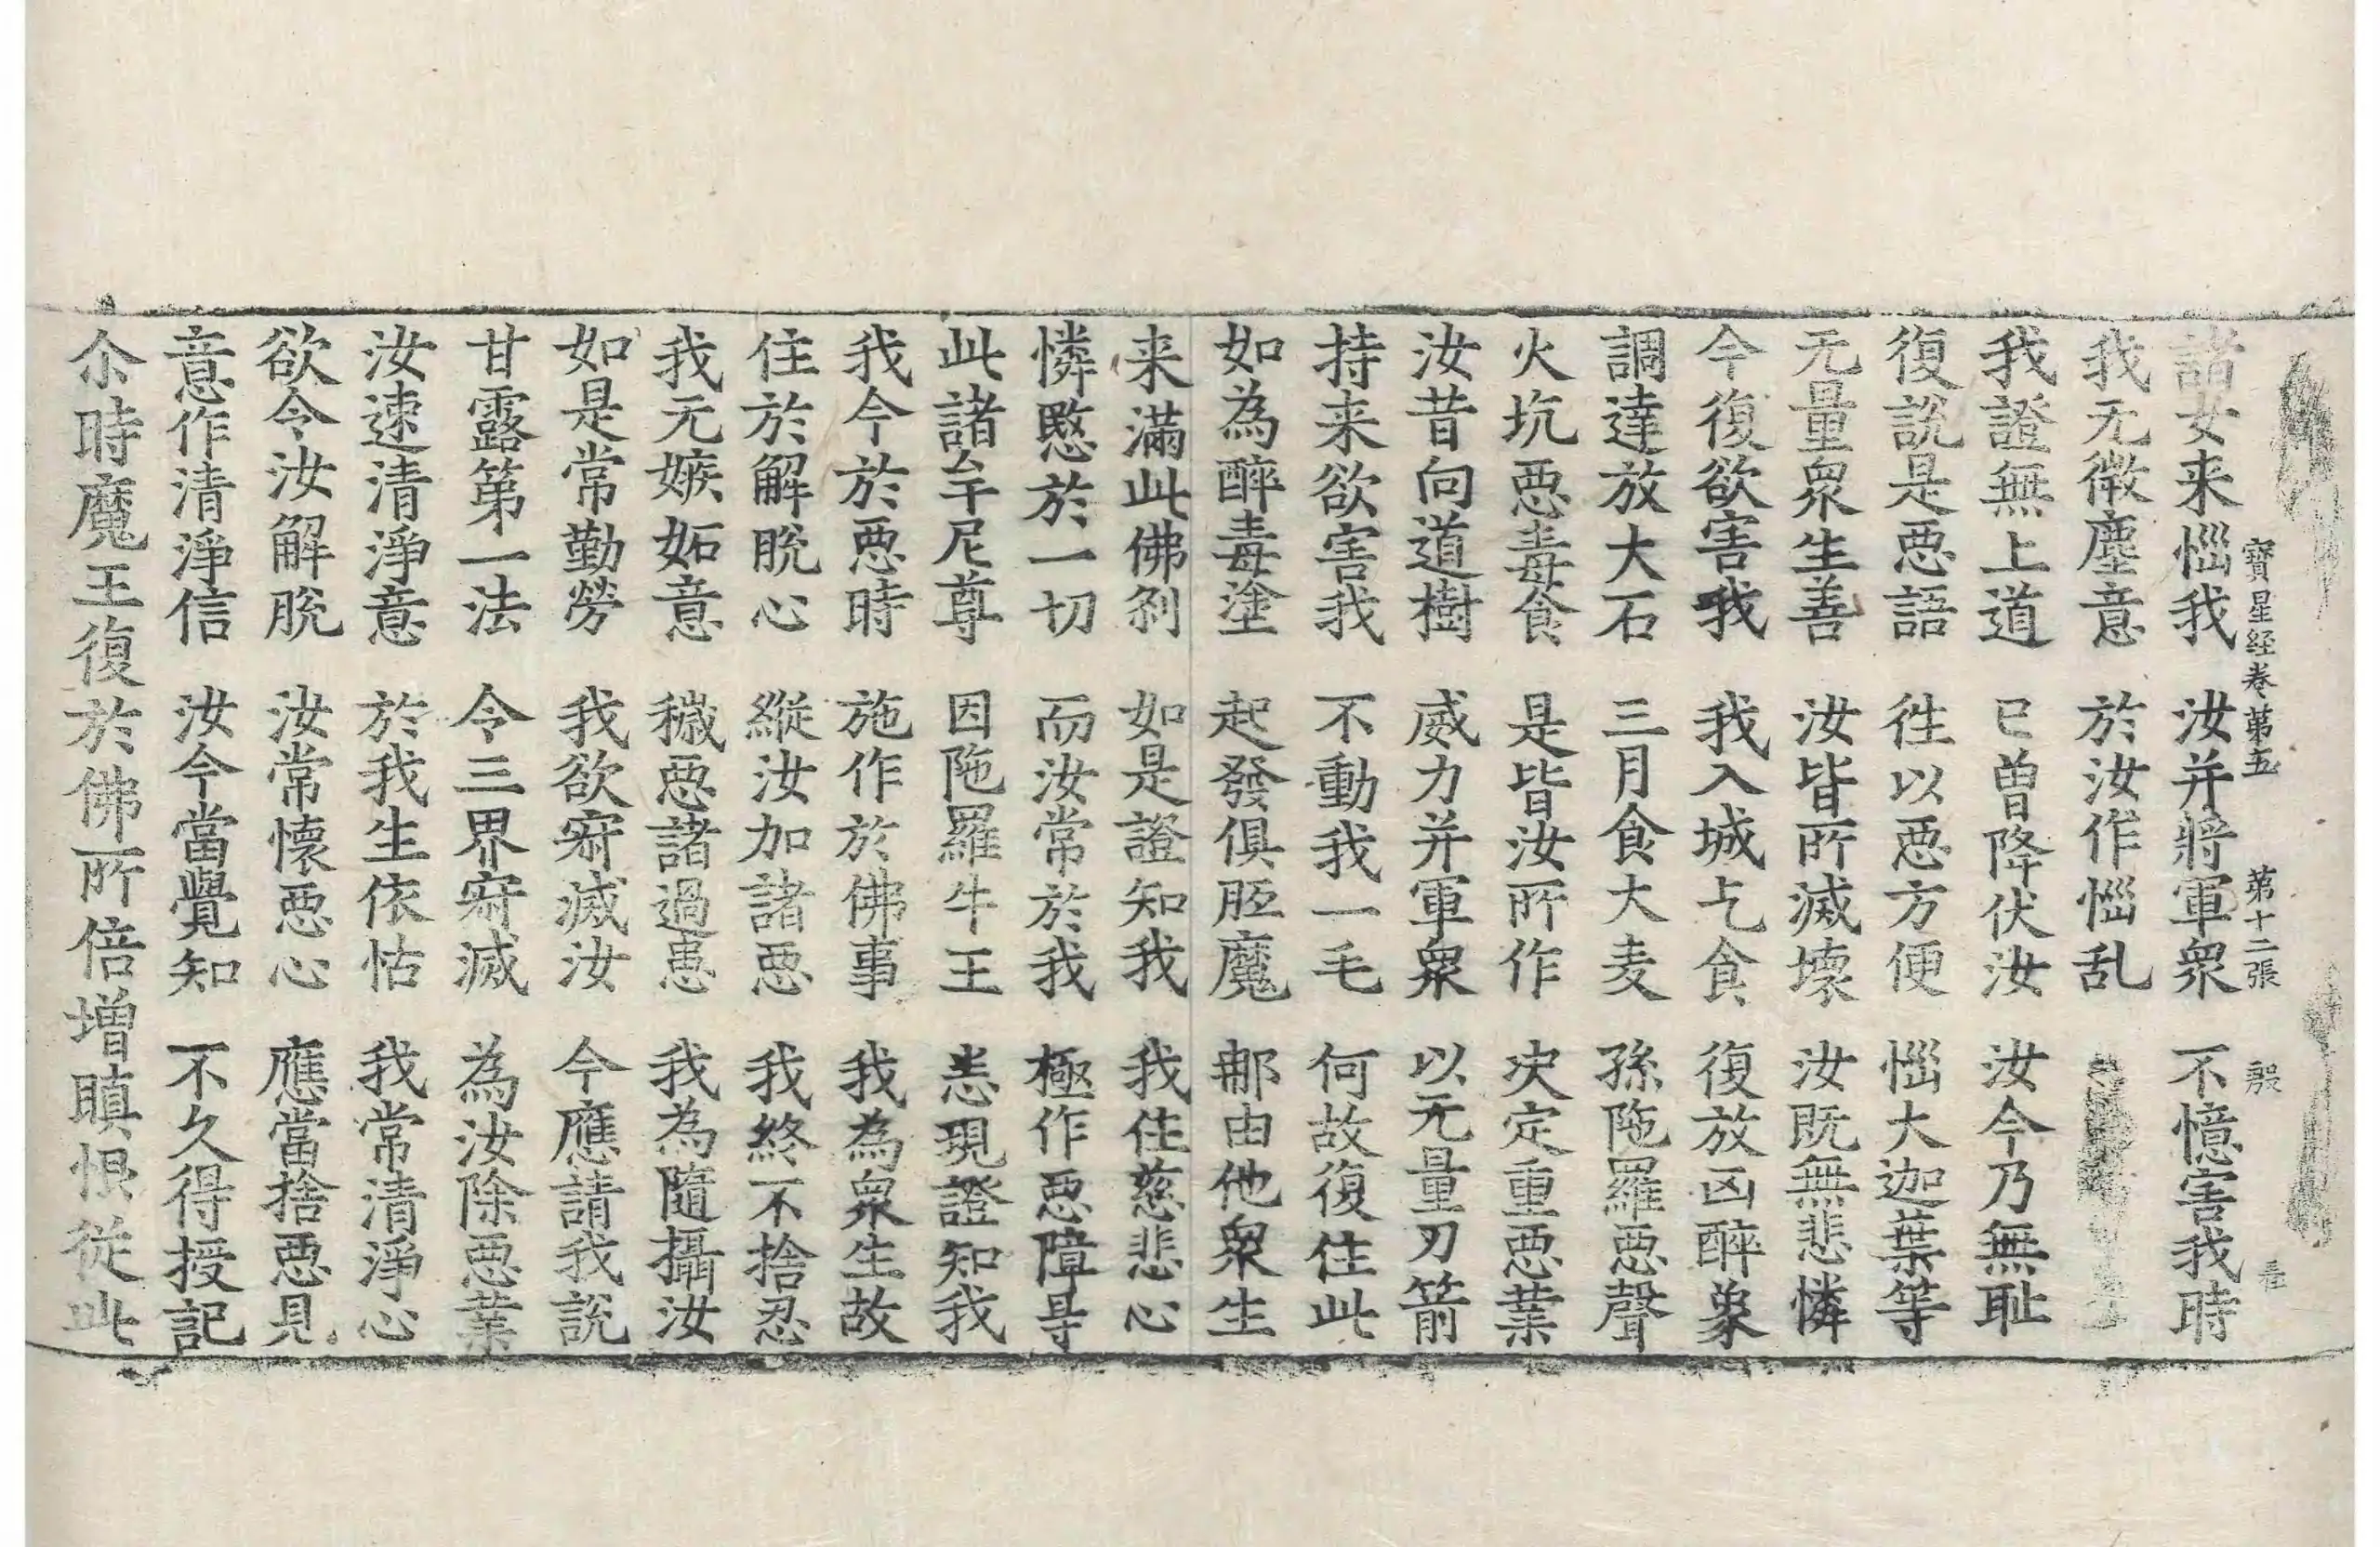 諸女来惱我 汝并將軍衆 不憶害我時
寶星経卷第五 第十二張 殷
我无微塵意 於汝作惱乱
我證無上道 已曾降伏汝 汝今乃無耻
復說是惡語 徃以惡方便 惱大迦葉等
无量衆生善 汝皆所滅壞 汝既無悲憐
今復欲害我 我入城乞食 復放凶醉象
調達放大石 三月食大麦 孫陁羅惡聲
火坑惡毒食 是皆汝所作 决定重惡業
汝昔向道樹 威力并軍衆 以无量刃箭
持来欲害我 不動我一毛 何故復住此
如為醉毒塗 起發俱胝魔 那由他衆生
来滿此佛刹 如是證知我 我住慈悲心
憐愍於一切 而汝常於我 極作惡障㝵
此諸牟尼尊 因陁羅牛王 悉現證知我
我今於惡時 施作於佛事 我為衆生故
住於解脫心 縱汝加諸惡 我終不捨忍
我无嫉妬意 穢惡諸過患 我為隨攝汝
如是常勤勞 我欲㝛滅汝 今應請我說
甘露第一法 令三界㝛滅 為汝除惡業
汝速清淨意 於我生依怙 我常清淨心
欲令汝解脫 汝常懷惡心 應當捨惡見
意作清淨信 汝今當覺知 不久得授記
尒時魔王復於佛所倍增瞋恨從此